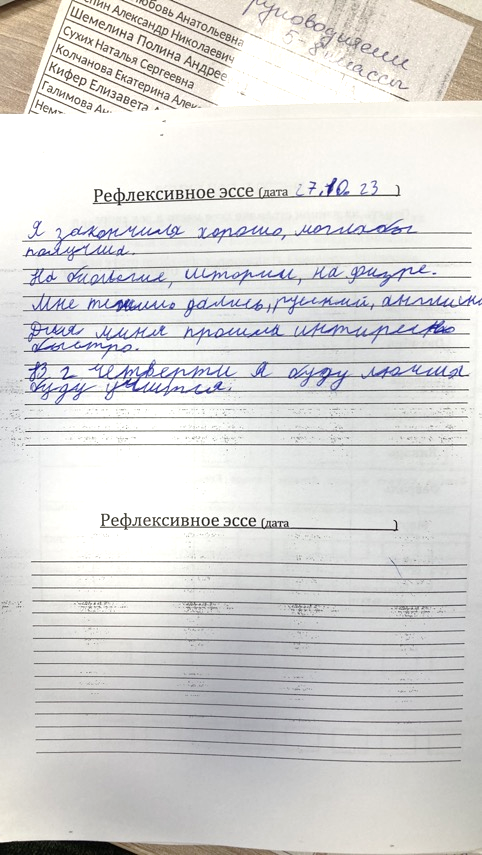 юбовь Анатольевна
епин Александр Николаевич
Шемелина Полина Андрее
Сухих Наталья Сергеевна
Колчанова Екатерина Алек
Кифер Елизавета
Галимова Ан
Немт
руководители
5-8 классы
Рефлексивное эссе (дата 27.10.23)
Я закончила хорошо, могла бы
получше.
На биологие, истории, на физре.
Мне тежило дались, руский, англиск
Для миня прошла интиресно
быстро.
В 2 четверти я буду лючша
буду учится.
Рефлексивное эссе (дата )